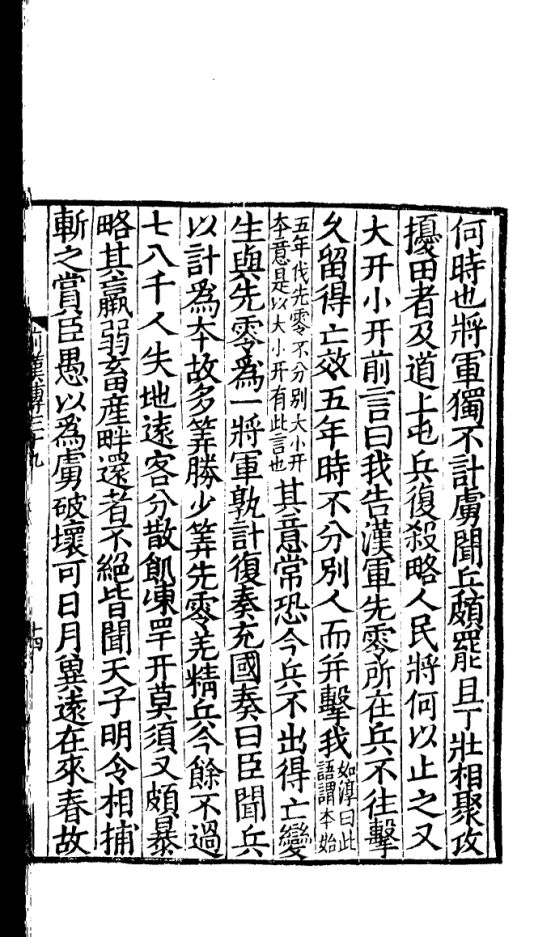 何時也將軍獨不計虜聞兵頗罷且丁壯相聚攻
擾田者及道上屯兵復殺略人民將何以止之又
大幵小幵前言曰我告漢軍先零所在兵不往擊
久留得亡效五年時不分別人而并擊我如淳曰此語謂本始
五年伐先零不分別大小幵夲意是以大小幵有此言也其意常恐今兵不出得亡變
生與先零爲一將軍孰計復奏充國奏曰臣聞兵
以計爲夲故多筭勝少筭先零羌精兵今餘不過
七八千人失地遠客分散飢凍䍐幵莫須又頗暴
略其羸弱畜産畔還者不絶皆聞天子明令相捕
斬之賞臣愚以爲虜破壞可日月兾遠在來春故
前漢傳三十九
十四